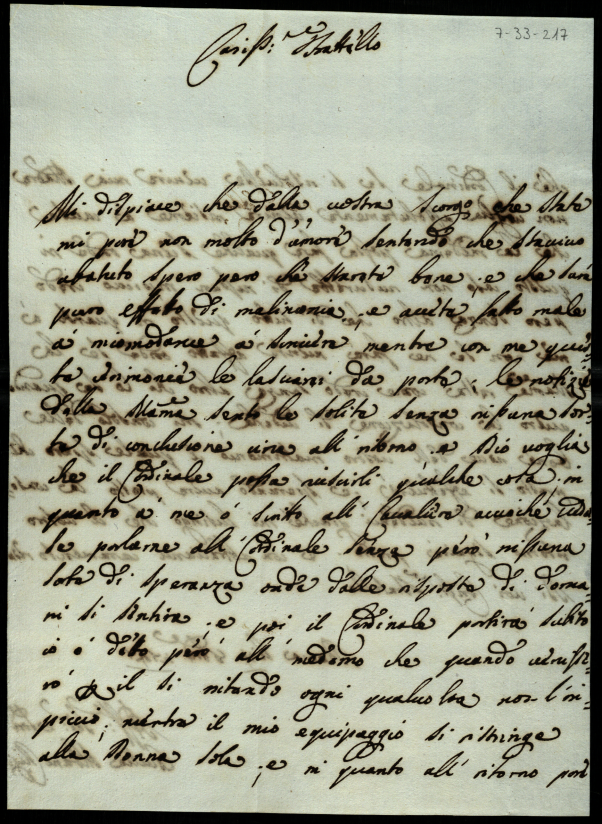 7-33-217
Cariss:mo Frattello
Mi dispiace che dalla vostra scorgo che state
mi però non molto d'amore sentendo che stavivo
abatuto spero pero che starete bene, e che sarà
puro effetto di melinconia, e avete fatto male
á incomodarve á scrivere, mentre con me ques=
ta cirimonia le lasciarei da parte, le notizie
dalla Mame sento le solite senza nissuna sor=
te di conclusione circa all' ritorno e Dio voglia
che il Cardinale possa riuscirli qualche cosa, in
quanto á me ó scritto all' Cavaliere accioche
se parlarne all' Cardinale senza però nissuna
sorte di speranza onde dalle risposte di doma=
ni si sentira, e poi il Cardinale partirà subito
io ó detto però all' medemo che quando
ró il si ogni qualvolta non l'in=
picci, mentre il mio equipaggio si ristringe
alla Donna sola, e in quanto all' ritorno però